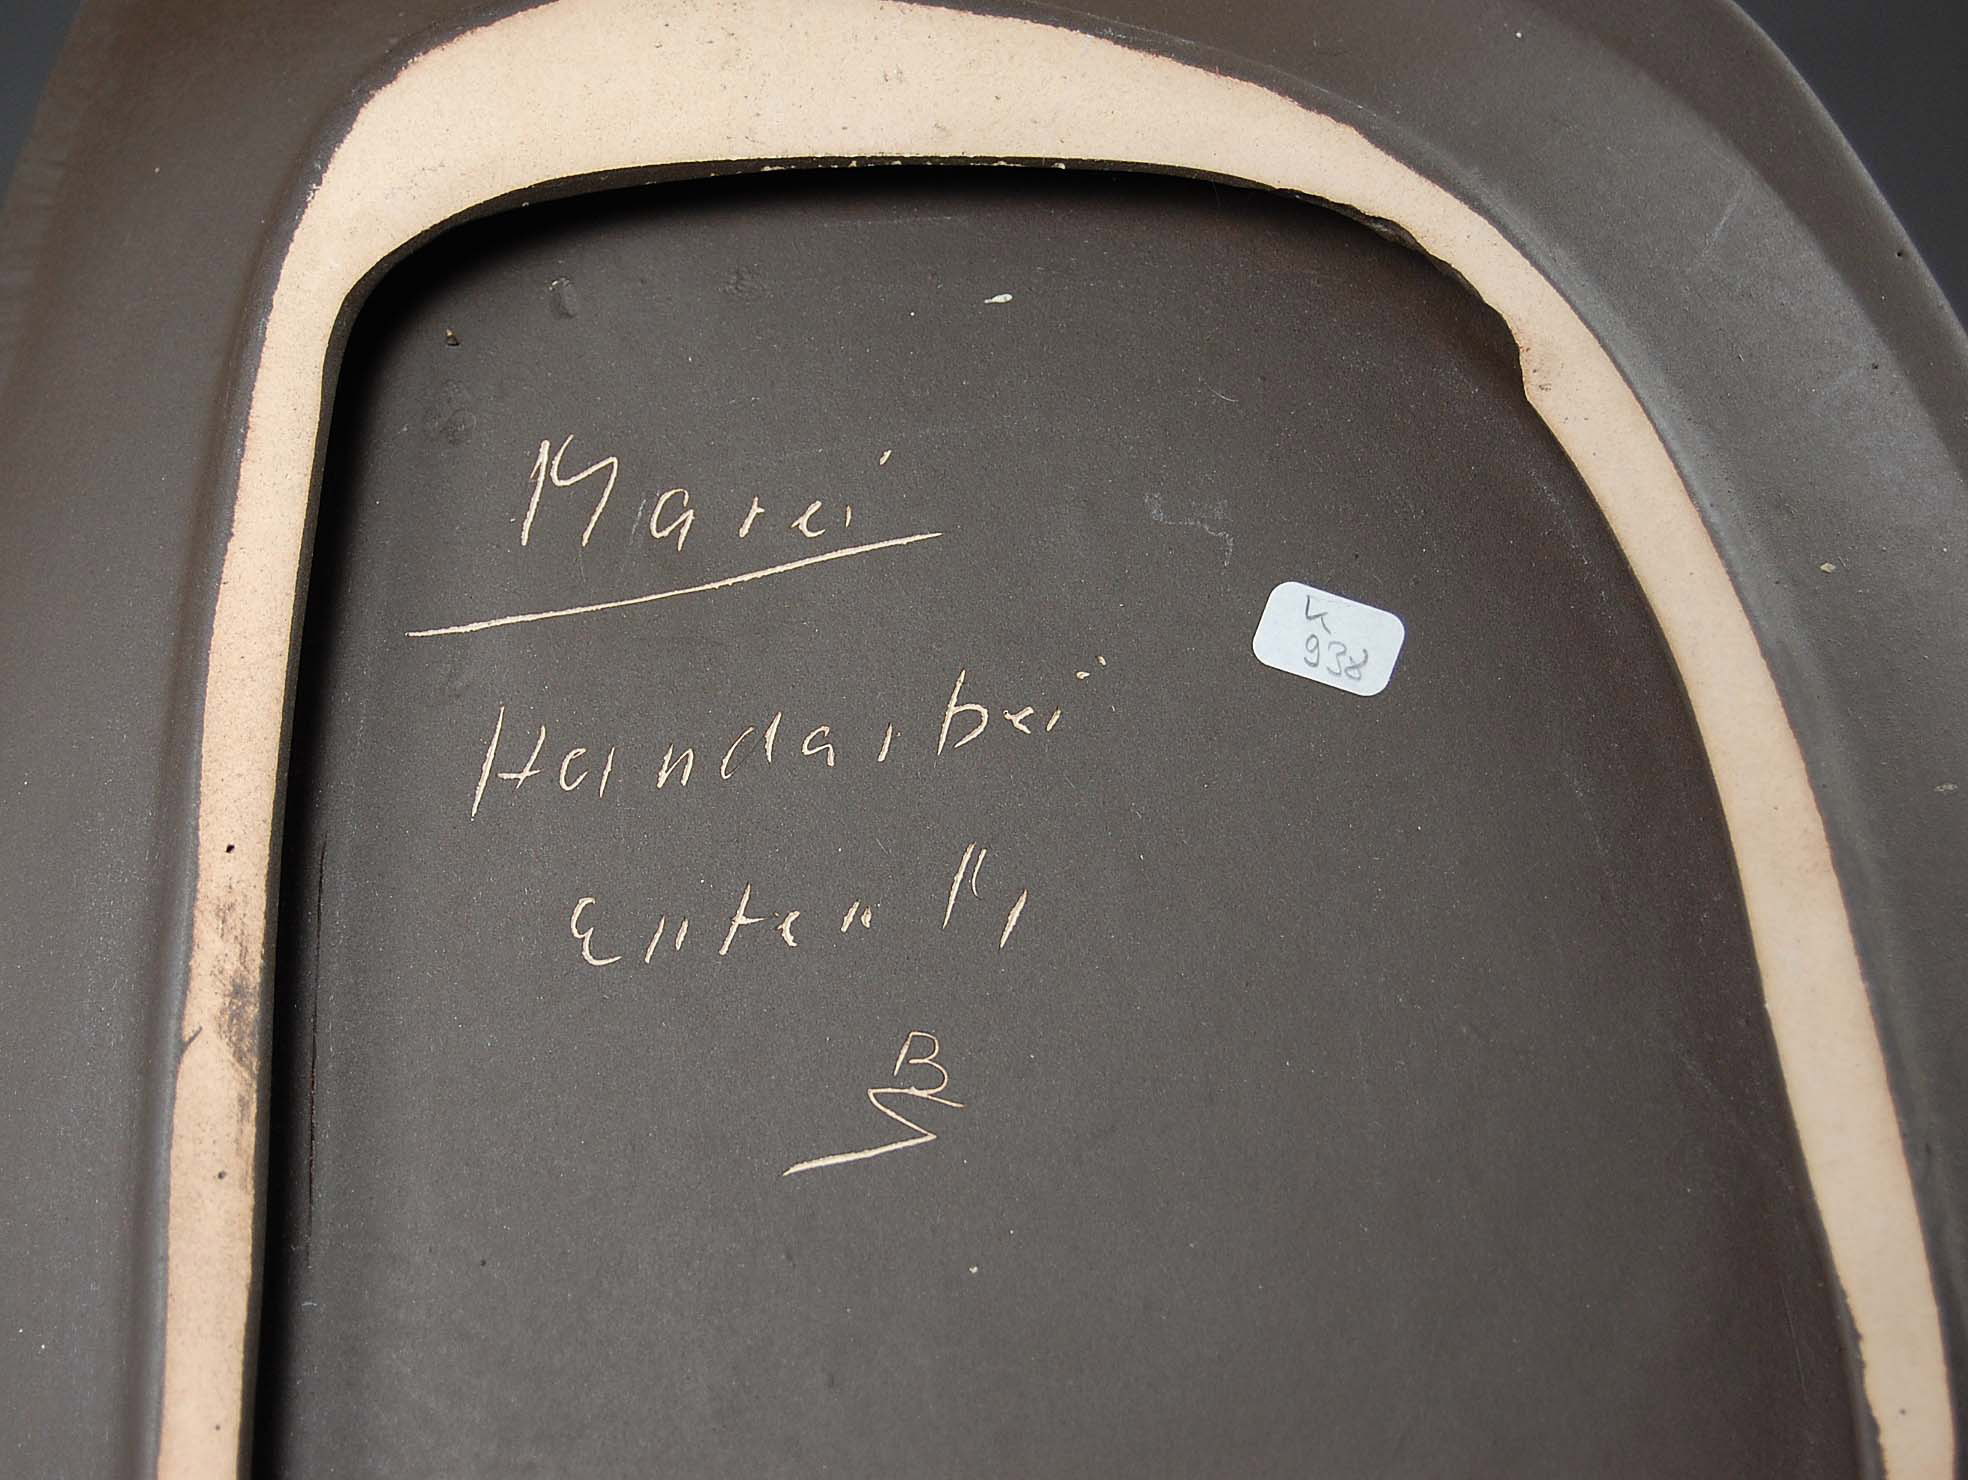 Marei
Handarbei
Enten
B
K
938